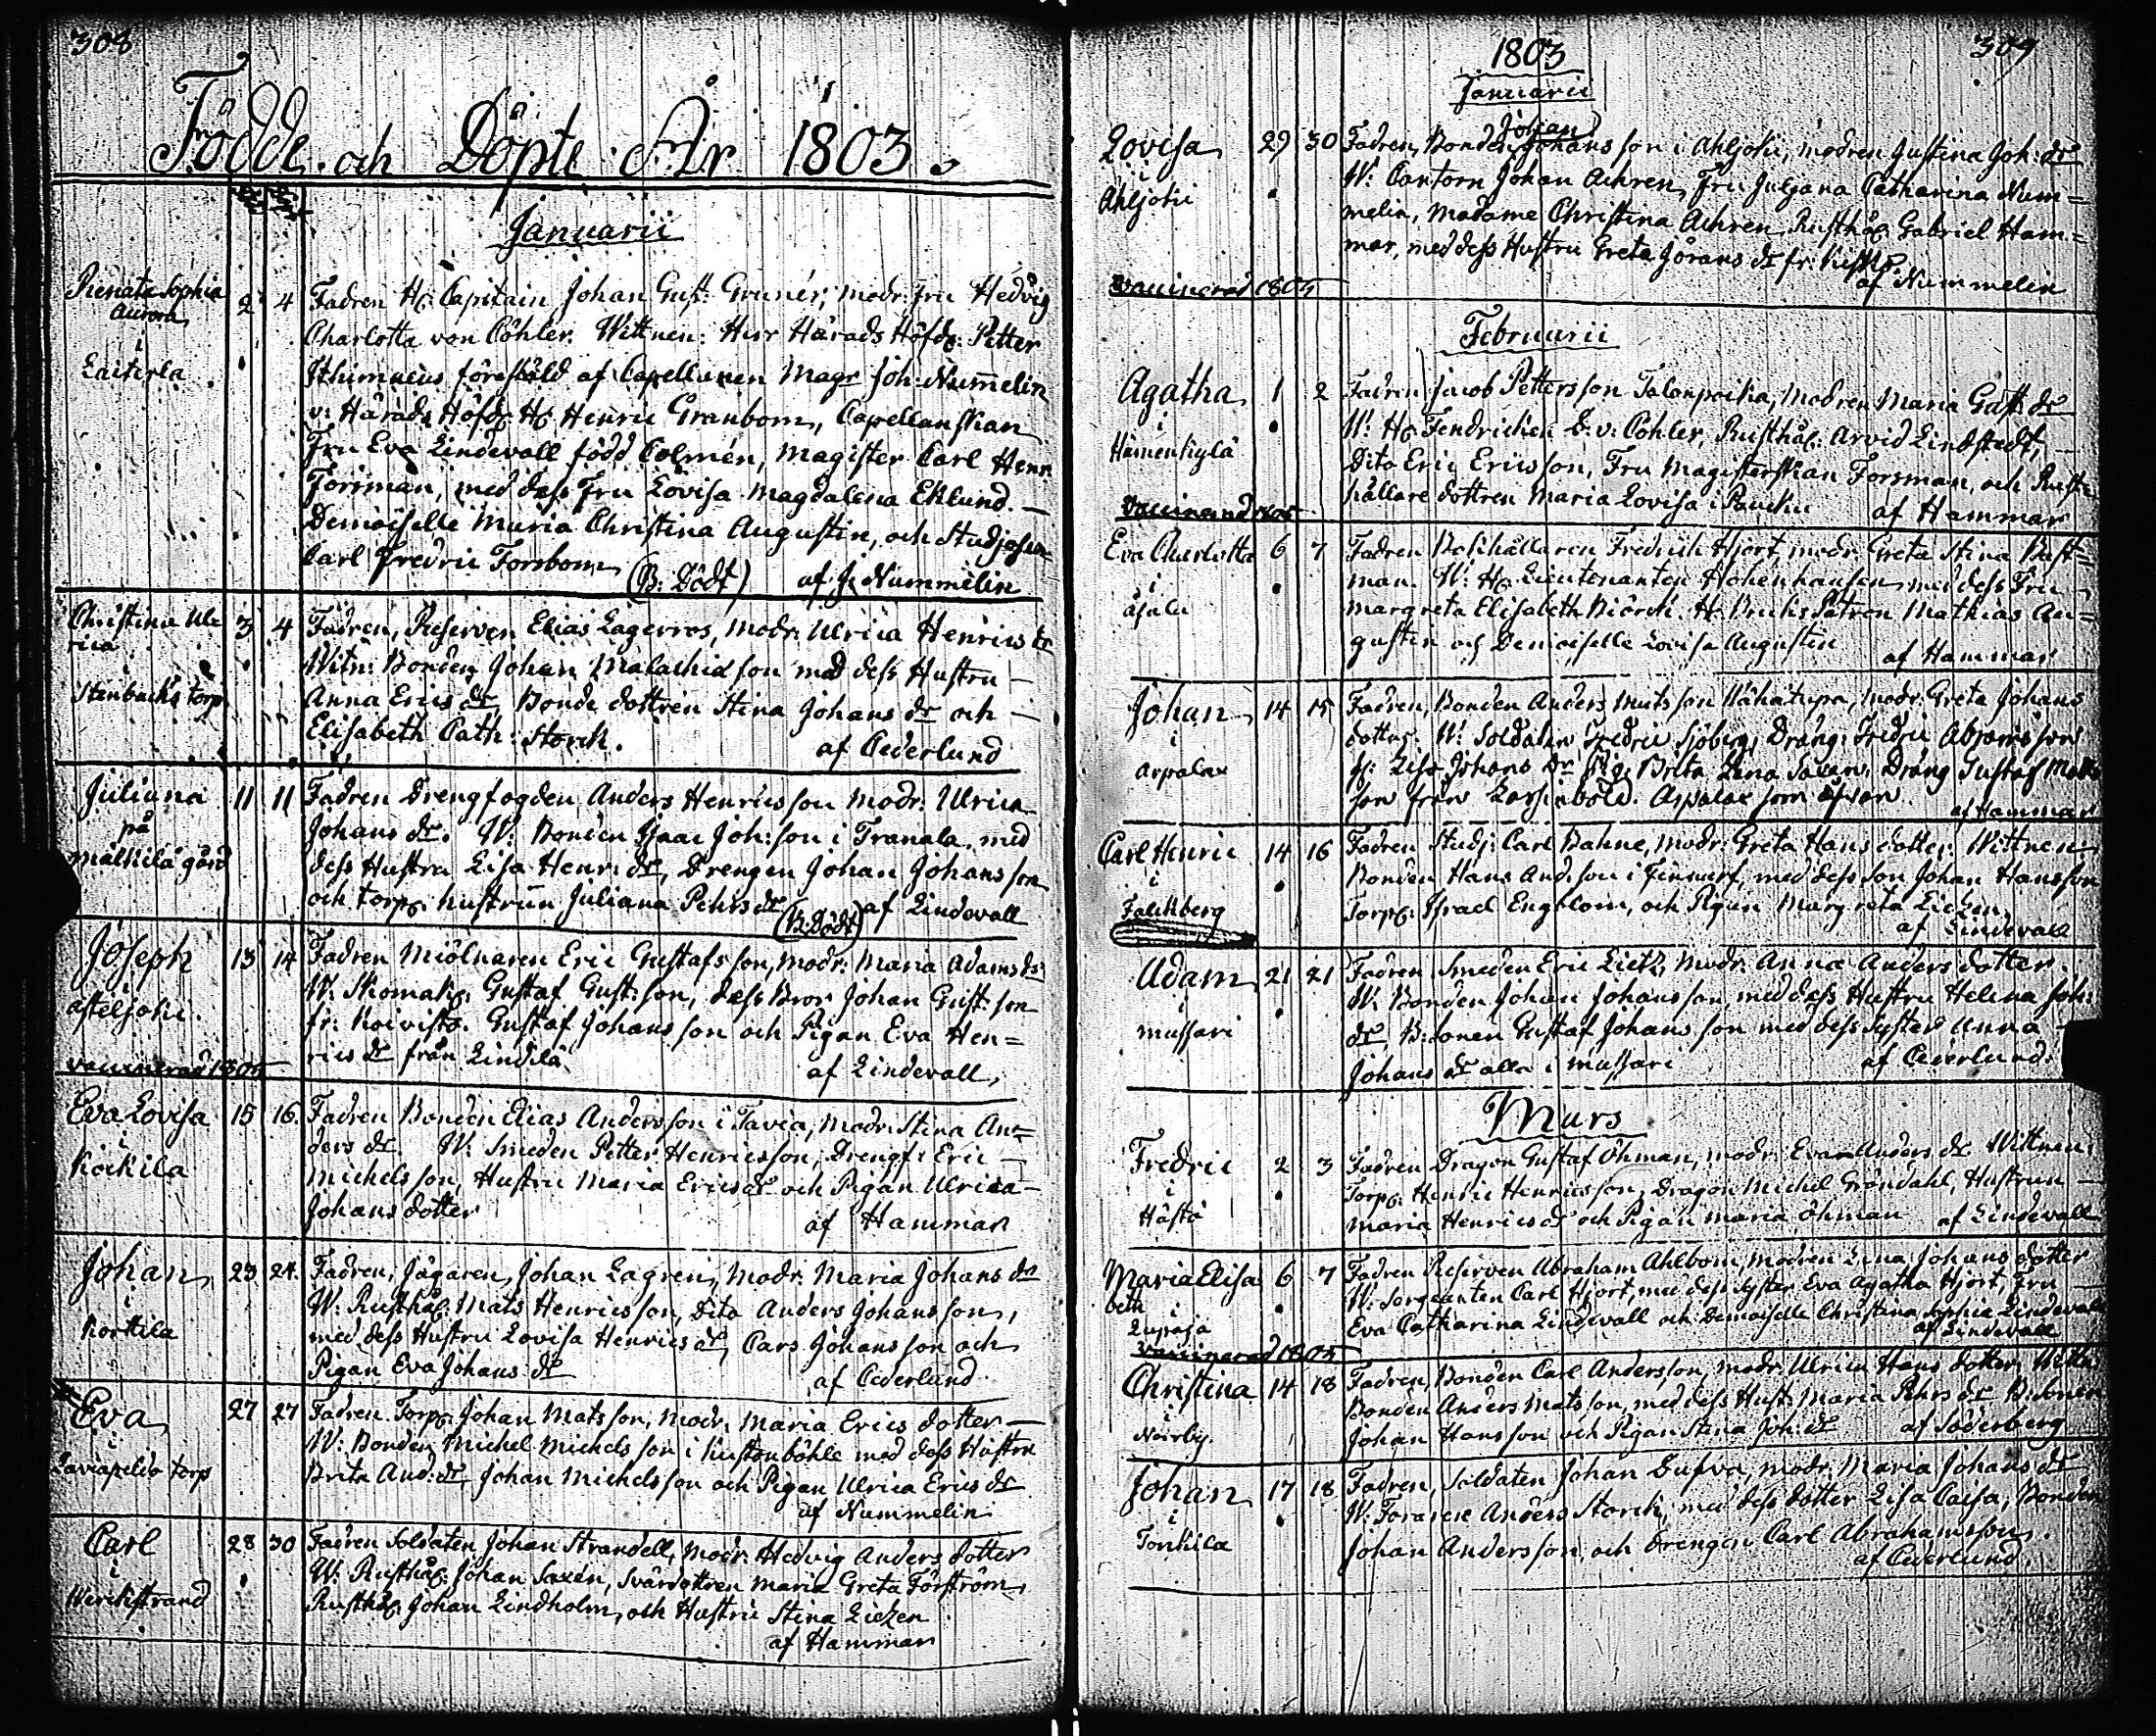 308
Födde och Döpte År 1803.
Januarii
Renata Sophia
Aurora
i
Laitsila
2 4 Fadren Hr Capitain Johan Gust: Gruner, modr: Fru Hedvig
Charlotta von Cöhler. Wittnen: Herr Härads Höfd: Petter
Ithimæus föreståld af Capellanen Magr Joh: Nummelin
v: Härads Höfd: Hr Henric Granbom, Capellanskan
Fru Eva Lindevall född Colmén, Magister Carl Henr.
Forsman, med dess Fru Lovisa Magdalena Eklund. —
Demoiselle Maria Christina Augustin, och Studiosen
Carl Fredric Forsbom (B: Dödt) af J: Nummelin
Christina Ul-
rica
i
Stenbacks torp
3 4 Fadren, Reserven Elias Lagerros, modr: Ulrica Henrics dr
Witn: Bonden Johan Malachiæson med dess Hustru —
Anna Erics dr, Bonde dottren Stina Johans dr och —
Elisabeth Cath: Storck. af Cederlund
Juliana
på
Mälkilä gård
11 11 Fadren Drengfogden Anders Henricsson modr: Ulrica
Johans dr. W: Bonden Isaac Joh:son i Tranala, med
dess Hustru Lisa Henr: dr, Drengen Johan Johansson
och torp: hustrun Juliana Pehrs dr (B: Dödt) af Lindevall
Joseph
i
asteljoki
vaccinerad 1805
13 14 Fadren Miölnaren Eric Gustafsson, modr: Maria Adams dr
W: Skomak: Gustaf Gust:son, dess Bror Johan Gust:son
fr: Koivisto. Gustaf Johansson och Pigan Eva Hen=
rics dr från Lindilä af Lindevall,
Eva Lovisa
i
Köckila
15 16. Fadren Bonden Elias Andersson i Tavia, modr: Stina An=
ders dr. W: Smeden Petter Henricsson, Drengf: Eric —
Michelsson, Hustru Maria Ericsdr och Pigan Ulrica —
Johans dotter af Hammar
Johan
i
Korttila
23 24. Fadren, Jägaren, Johan Lagren, Modr: Maria Johans dr
W: Rusthål: Mats Henricsson, Dito Anders Johansson,
med dess Hustru Lovisa Henrics dr, Lars Johansson och
Pigan Eva Johans dr af Cederlund
Eva
i
torp
27 27 Fadren Torp: Johan Matsson, Modr: Maria Erics dotter —
W: Bonden Michel Michelsson i Kuttenböhle med dess Hustru
Brita And: dr, Johan Michelsson och Pigan Ulrica Erics dr
af Nummelin
Carl
i
Werckstrand
28 30 Fadren Soldaten Johan Strandell, Modr: Hedvig Anders dotter
W: Rusthål: Johan Saxén, Svärdottren Maria Greta Förström,
Rusthål: Johan Lindholm, och Hustru Stina Liezen
af Hammar
1803 309
Januarii
Lovisa
i
Ahljoki
vaccinerad 1805
Johan
29 30 Fadren, Bonden Johansson i Ahljoki, modren Justina Joh: dr
W: Cantorn Johan Achren, Fru Juliana Catharina Num=
melin, Madame Christina Achren, Rusthål: Gabriel Ham=
mar, med dess Hustru Greta Jörans dr fr:
af Nummelin
Februarii
Agatha
i
Hämenkylä
vaccinerad 1805
1 2 Fadren Jacob Pettersson Talonpoika, Modren Maria Gust: dr
W: Hr Fendricken D: v: Cöhler, Rusthål: Arvid Lindstedt,
Dito Eric Ericsson, Fru Magisterskan Forsman, och Rust-
hållare dottren Maria Lovisa i Paucku af Hammar
Eva Charlotta
i
Äjälä
6 7 Fadren Bokhållaren Fredrich Hjort, modr: Greta Stina Bust=
man. W: Hr Lieutenanten Hohenhausen med dess Fru
Margreta Elisabeth Biörck. Hr Bruks Patron Mathias Au=
gustin och Demoiselle Lovisa Augustin af Hammar
Johan
i
Arpalax
14 15 Fadren, Bonden Anders Matsson Vähätupa, modr: Greta Johans
dotter. W: Soldaten Fredric Sjöberg, Dräng: Fredric Abramsson
H: Lisa Johans dr Pig: Brita Lena Saxen, Dräng Gustaf Mats
son från Lassinböle. Arpalax som ofvan. af Hammar
Carl Henric
i
Falckberg
14 16 Fadren Studj: Carl Bahne, modr: Greta Hans dotter. Wittnen
Bonden Hans And:son i Finnarf, med dess Son Johan Hansson
Torp: Israel Engblom, och Pigan Margreta Liezen.
af Lindevall
Adam
i
Mussari
21 21 Fadren, Smeden Eric Lietz, Modr: Anna Anders dotter.
W: Bonden Johan Johansson, med dess Hustru Helena Joh:
dr, B:sonen Gustaf Johansson med dess Syster Anna —
Johans dr alla i Mussari af Cederlund
Mars
Fredric
i
Hästö
2 3 Fadren Dragon Gustaf Öhman, modr: Eva Anders dr Wittnen:
Torp: Henric Henricsson, Dragon Michel Gröndahl, Hustrun —
Maria Henrics dr och Pigan Maria Öhman af Lindevall
Maria Elisa
beth i
Lupaja
vaccinerad 1805
6 7 Fadren Reserven Abraham Ahlbom, Modren Lena Johans dotter
W: Sergeanten Carl Hjort, med dess Syster Eva Agatha Hjort, Fru —
Eva Catharina Lindevall och Demoiselle Christina Sophia Lindevall
af Lindevall
Christina
i
Norrby
14 18 Fadren, Bonden Carl Andersson, modr: Ulrica Hans dotter, Wittn:
Bonden Anders Matsson, med dess Hust: Maria Pehrs dr B:sonen
Johan Hansson och Pigan Stina Joh: dr af Söderberg
Johan
i
Torckila
17 18 Fadren, Soldaten Johan Dufva, modr: Maria Johans dr
W: Forarere Anders Storck, med dess dotter Lisa Caisa, Bonden
Johan Andersson, och Drengen Carl Abrahamsson.
af Cederlund